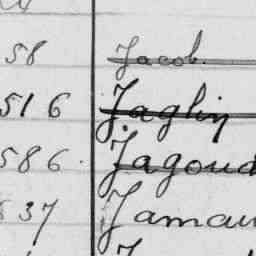 58 Jacob
516 Jaglin
586 Jagoud
837 Jamau